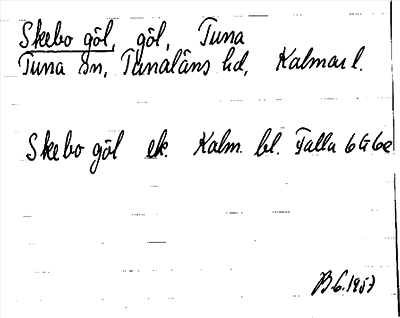 Skebo göl, göl, Tuna
Tuna sn, Tunaläns hd, Kalmar l.
Skebo göl ek. Kalm. bl. Talla 6G6e
B.G. 1957